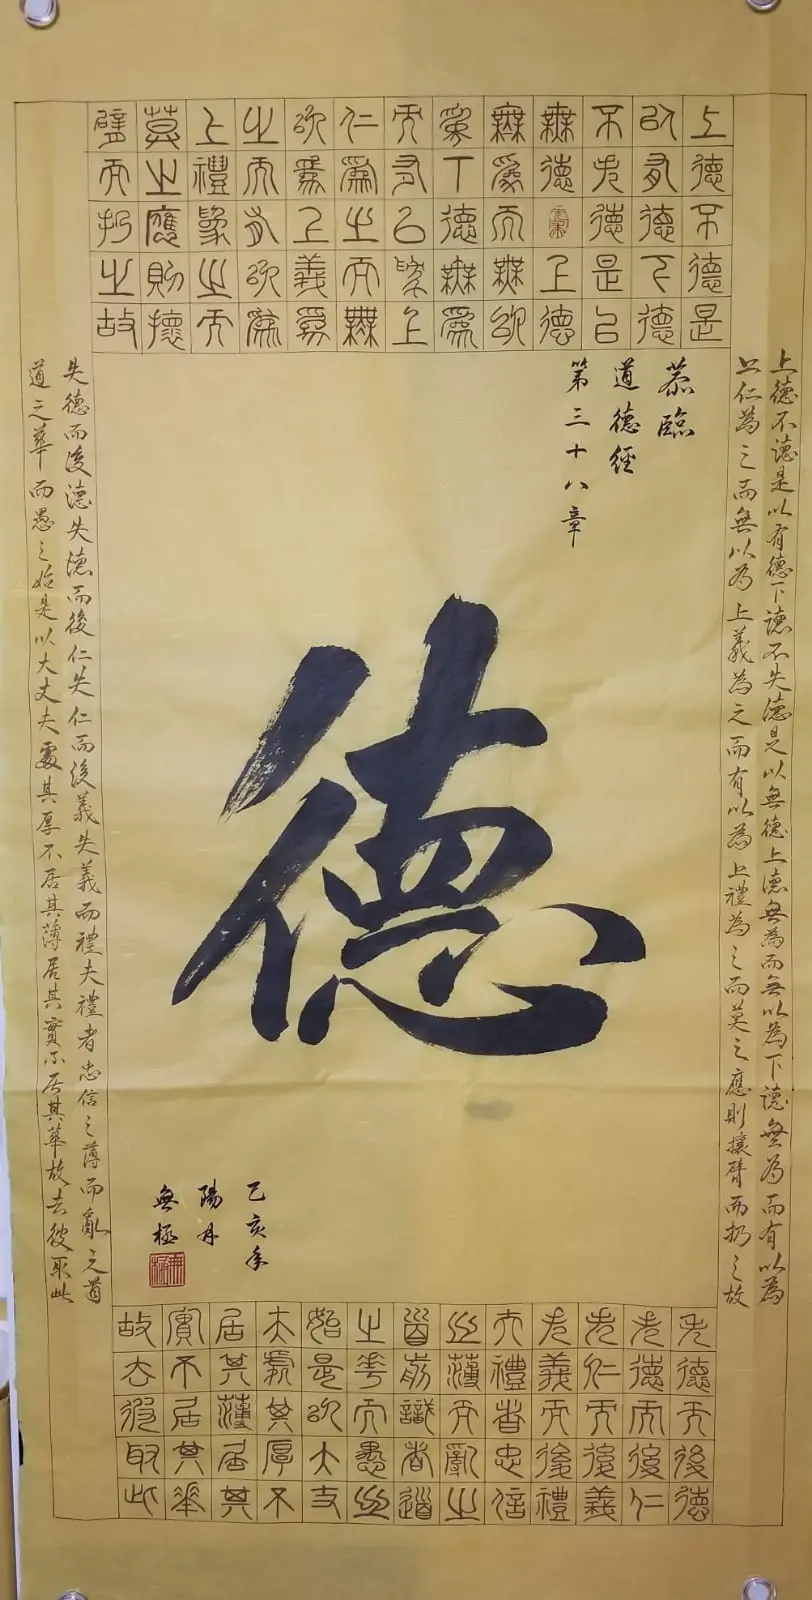 上德不德是
以有德下德
不失德是以
無德上德
無為而無以
為下德無為
而有以為上
仁為之而無
以為上義為
之而有以為
上禮為之而
莫之應則攘
臂而扔之故
上德不德是以有德下德不失德是以無德上德無為而無以為下德無為而有以為
上仁為之而無以為上義為之而有以為上禮為之而莫之應則攘臂而扔之故
恭臨
道德經
第三十八章
德
己亥年
陽丹
無極
失德而後德失德而後仁失仁而後義失義而禮夫禮者忠信之薄而亂之首
道之華而愚之始是以大丈夫處其厚不居其薄居其實不居其華故去彼取此
失德而後德
失德而後仁
失仁而後義
失義而後禮
夫禮者忠信
之薄而亂之
首前識者道
之華而愚之
始是以大丈
夫處其厚不
居其薄居其
實不居其華
故去彼取此